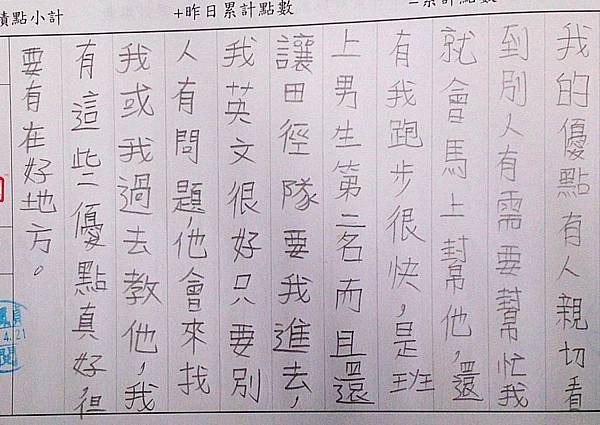 積點小計
+昨日累計點數
我的優點有人親切看
到別人有需要幫忙我
就會馬上幫他,還
有我跑步很快,是班
上男生第二名而且還
讓田徑隊要我進去,
我英文很好只要別
人有問題,他會來找
我或我過去教他,我
有這些優點真好,但
要有在好地方。
4.21
閱